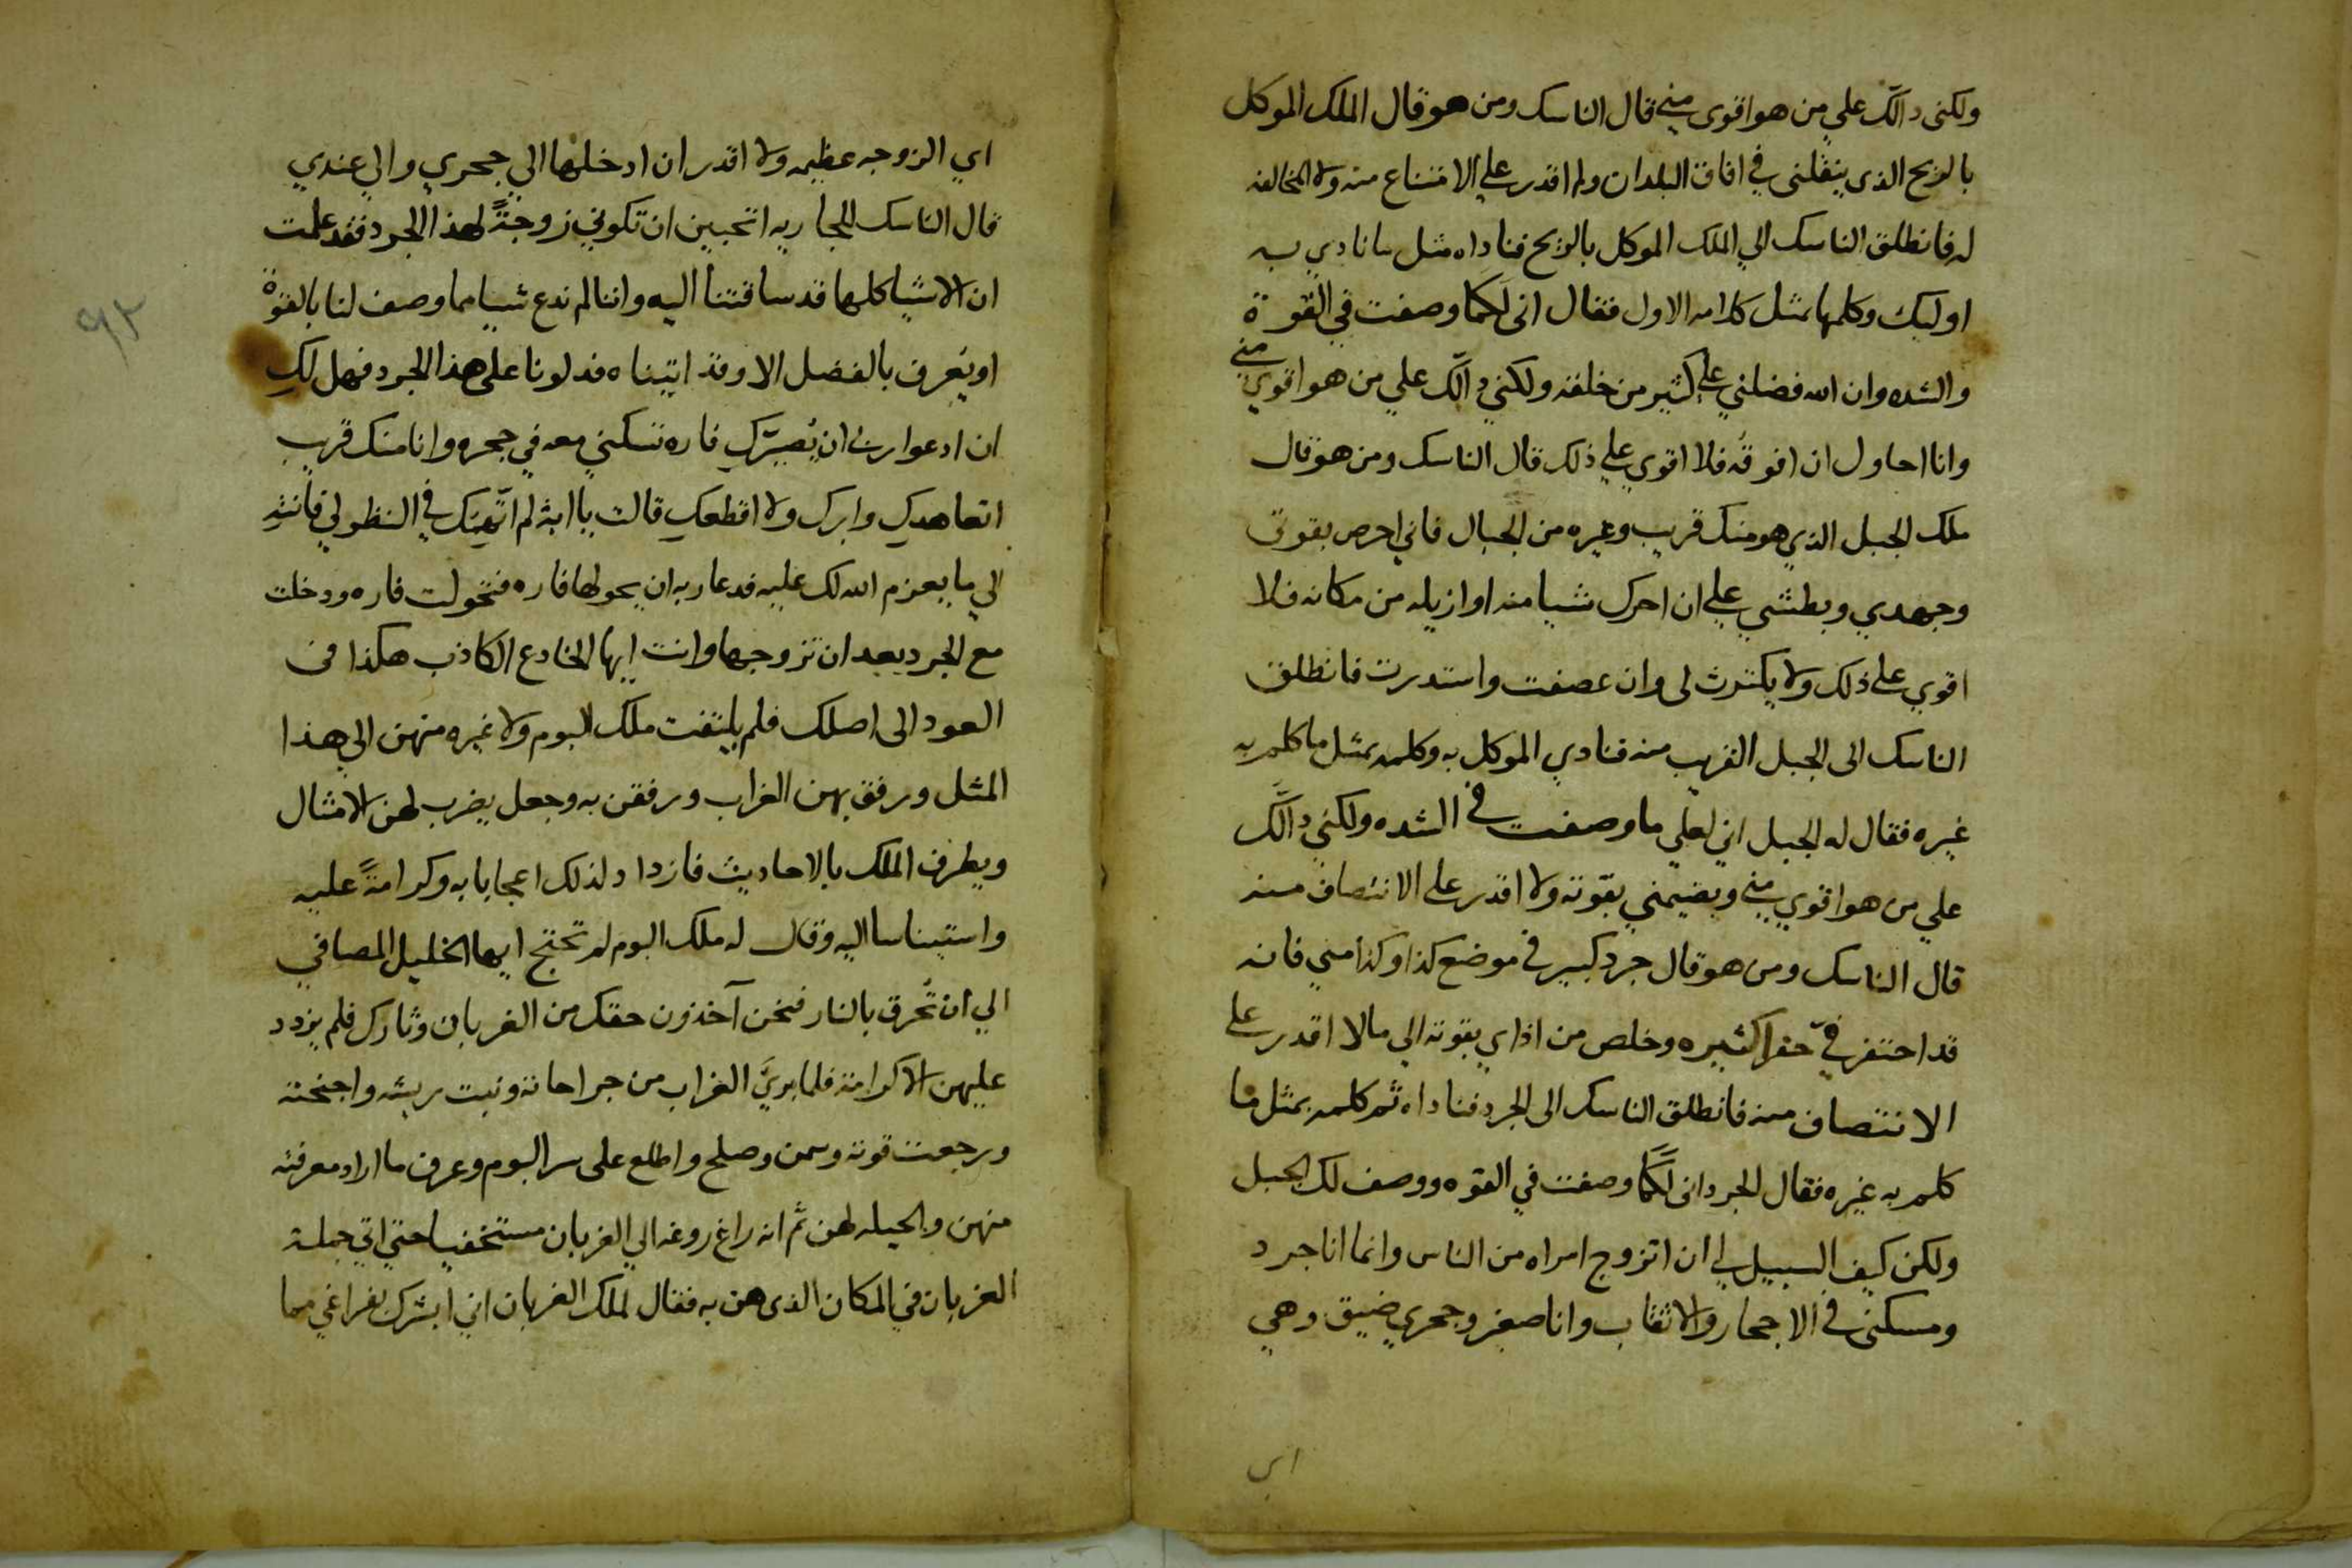 ولكنى دالك علي من هو اقوى مني قال الناسك ومن هو قال الملك الموكل
بالريح الذى ينقلنى في افاق البلدان ولم اقدر على الامتناع منه ولا المخالفه
له فانطلق الناسك الي الملك الموكل بالريح فناداه مثل ما نادي به
اوليك وكلمها بمثل كلامه الاول فقال انى لكما وصفت في القوة
والشده وان الله فضلني على كثير من خلقه ولكني دالك علي من هو اقوي مني
وانا احاول ان افوقه فلا اقوي علي ذلك قال الناسك ومن هو قال
ملك الجبل الذي هو منك قريب وغيره من الجبال فاني احرص بقوتى
وجهدي وبطشي علي ان احرك شيا منه او ازيله من مكانه فلا
اقوي على ذلك ولا يكترث لى وان عصفت واستدرت فانطلق
الناسك الى الجبل القريب منه فنادي الموكل به وكلمه بمثل ما كلم به
غيره فقال له الجبل اني لعلي ما وصفت في الشده ولكني دالك
علي من هو اقوي مني ويضيمني بقوته ولا اقدر على الانتصاف منه
قال الناسك ومن هو قال جرد كبير في موضع كذا وكذا مني فانه
قد احتفر فيّ حفرا كثيره وخلص من اذاي بقوته الي مالا اقدر على
الانتصاف منه فانطلق الناسك الى الجرد فناداه ثم كلمه بمثل ما
كلم به غيره فقال الجرد انى لكما وصفت في القوه ووصف لك الجبل
ولكن كيف السبيل لي ان اتزوج امراه من الناس وانما انا جرد
ومسكنى في الاجحار والاثقاب وانا صغير وجحري ضيق وهي
اي
اي الزوجه عظيمه ولا اقدر ان ادخلها الي جحري والي عندي
قال الناسك للجاريه اتحبين ان تكوني زوجةً لهذا الجرد فقد علمت
ان الاشيا كلها قد ساقتنا اليه واننا لم ندع شيا مما وصف لنا بالقوة
او يعرف بالفضل الا وقد اتيناه فدلونا على هذا الجرد فهل لكِ
ان ادعوا ربى ان يُصيّركِ فاره تسكني معه في جحره وانا منك قريب
اتعاهدك وابرك ولا اقطعكِ قالت يا ابة لم اتّهمك في النظر لي فانته
الي ما يعزم الله لك عليه فدعا ربه ان يحولها فاره فتحولت فاره ودخلت
مع الجرد بعد ان تزوجها وانت ايها الخادع الكاذب هكذا في
العود الى اصلك فلم يلتفت ملك البوم ولا غيره منهن الي هذا
المثل ورفق بهن الغراب ورفقن به وجعل يضرب لهن الامثال
ويطرف الملك بالاحاديث فازداد لذلك اعجابا به وكرامةً عليه
واستيناسا اليه وقال له ملك البوم لم تحتج ايها الخليل المصافي
الي ان تُحرق بالنار فنحن آخذون حقك من الغربان وثارك فلم يزدد
عليهن الا كرامة فلما بريَ الغراب من جراحاته ونبت ريشه واجنحته
ورجعت قوته وسمن وصلح واطلع على سر البوم وعرف ما اراد معرفته
منهن والحيله لهن ثم انه راغ روغه الي الغربان مستخفيا حتي اتي جملة
الغربان في المكان الذى هن به فقال لملك الغربان اني ابشرك بفراغي مما
٩٢